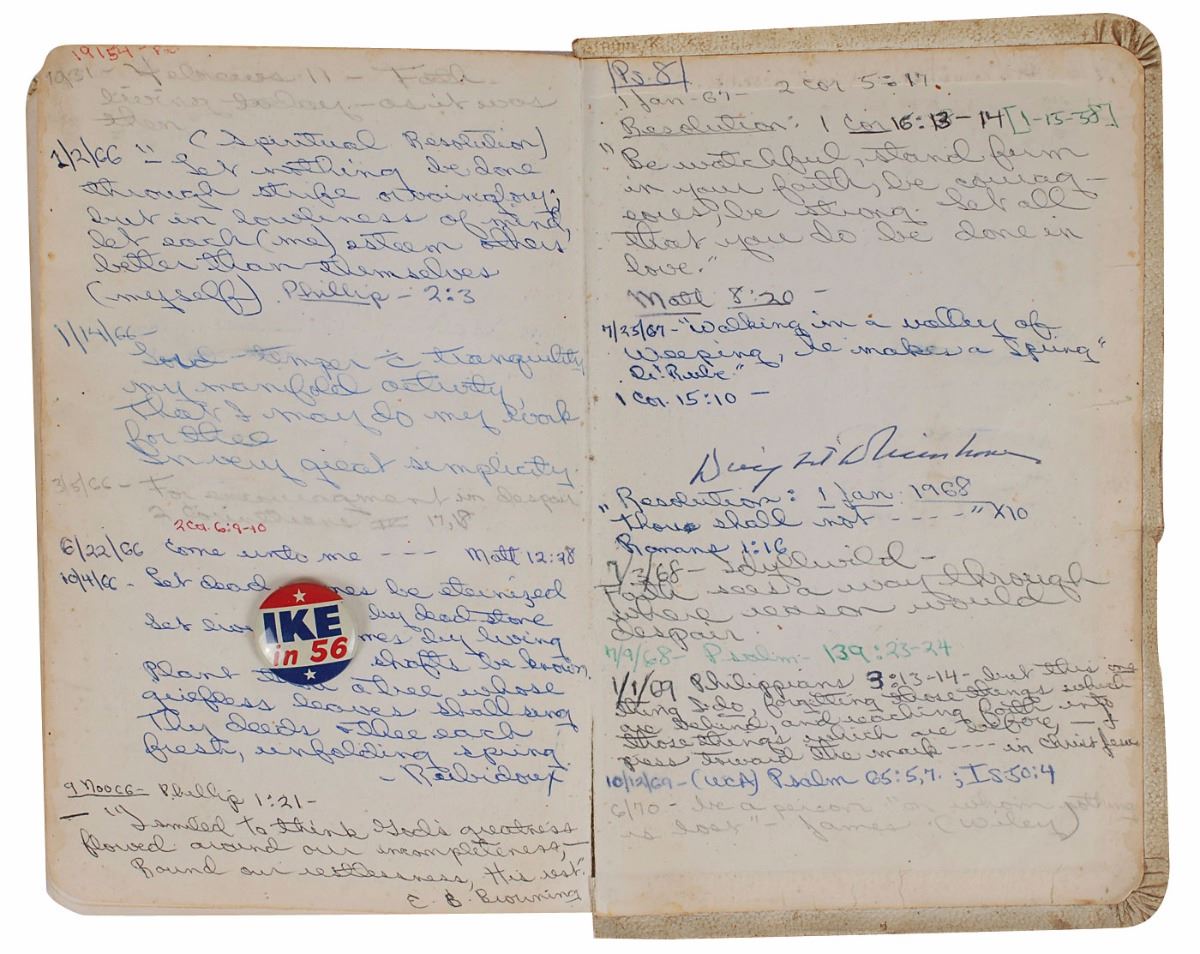 10/31 - Hebrews 11 - Faith
living today - as it was
then
1/2/66 - (Spiritual Resolution)
"Let nothing be done
through strife or vainglory;
but in lowliness of mind,
let each (me) esteem others
better than themselves
(myself) Phillip - 2:3
1/14/66 -
temper c̄ tranquility
my manifold activity,
that I may do my work
for thee
In very great simplicity.
3/5/66 - For encouragment in despair
2 Corinthians IV 17,18
2 Cor. 6:9-10
6/22/66 Come unto me ---- Matt 12:28
10/4/66 - Let dead be eternized
by dead stone
by living
shafts be known
Plant a tree, whose
griefless leaves shall sing
Thy deeds & thee each
fresh, unfolding spring
- Rabidoux
9 Nov 66 - Phillip 1:21 -
"I smiled to think God's greatness
flowed around our incompleteness, -
Round our restlessness, His rest."
E. B. Browning
IKE
in 56
Ps. 8
1 Jan - 67 - 2 Cor 5:17.
Resolution: 1 Cor 16:13-14 [1-13-58]
"Be watchful, stand firm
in your faith, be courag-
eous, be strong. Let all
that you do be done in
love."
Matt 8:20 -
7/25/67 - "Walking in a valley of
weeping, he makes a spring"
1 Cor. 15:10 -
Dwight D Eisenhower
Resolution: 1 Jan 1968
"thou shall not - - - - -" X10
Romans 1:16
7/ /68 - Idyllwild -
Faith sees a way through
where reason would
despair
7/9/68 - Psalm - 139:23-24
1/1/69 Philippians 3:13-14 - but this one
thing I do, forgetting those things which
are behind, and reaching forth unto
those things which are before, - I
press toward the mark ---- in Christ Jesus
10/12/69 - (UCA) Psalm 65:5,7. ; Is 50:4
6/70 - be a person "on whom nothing
is lost" - James (Wiley)